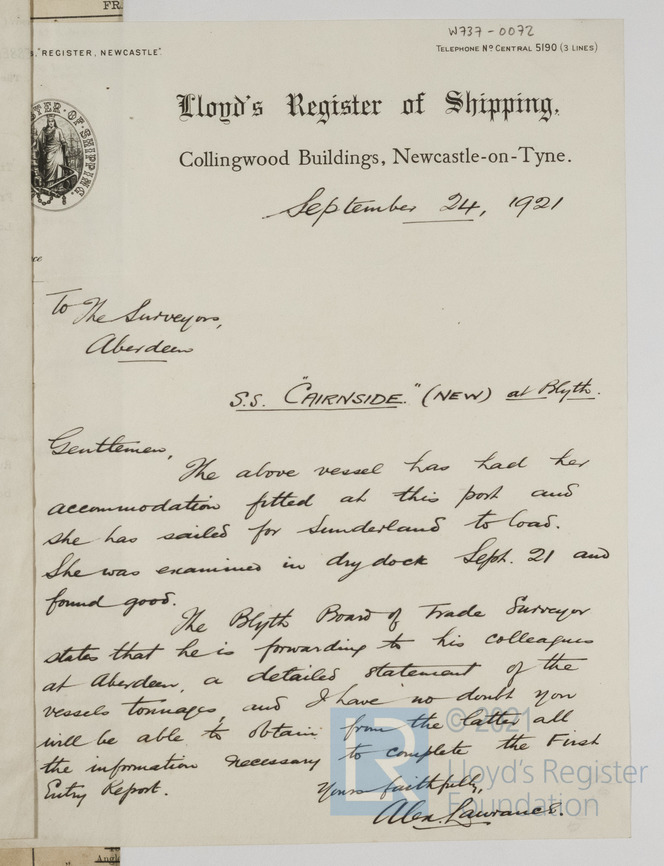 FR
W737-0072
"REGISTER, NEWCASTLE".
TELEPHONE No CENTRAL 5190 (3 LINES)
Lloyd's Register of Shipping,
Collingwood Buildings, Newcastle-on-Tyne.
September 24, 1921
To The Surveyors,
Aberdeen
S.S. "CAIRNSIDE." (NEW) at Blyth.
Gentlemen,
The above vessel has had her
accommodation fitted at this port and
she has sailed for Sunderland to load.
She was examined in dry dock Sept. 21 and
found good.
The Blyth Board of Trade Surveyor
states that he is forwarding to his colleagues
at Aberdeen, a detailed statement of the
vessels tonnages, and I have no doubt you
will be able to obtain from the latter all
the information necessary to complete the First
Entry Report.
Yours faithfully,
Alex. Lawrance.
© 2021
LR
Lloyd's Register
Foundation
Angl